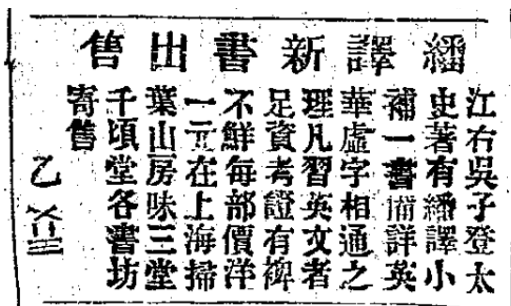 繙譯新書出售
江右吳子登太
史著有繙譯小
補一書備詳英
華虛字相通之
理凡習英文者
足資考證有裨
不鮮每部價洋
一元在上海掃
葉山房味三堂
千頃堂各書坊
寄售
乙